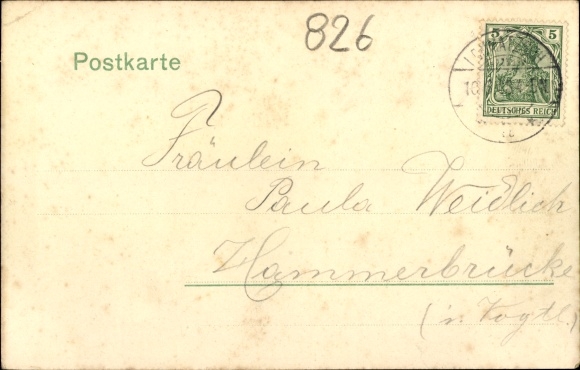 826
Postkarte
5 5
DEUTSCHES REICH
Fräulein
Paula Weidlich
Hammerbrücke
(i. Vogtl.)